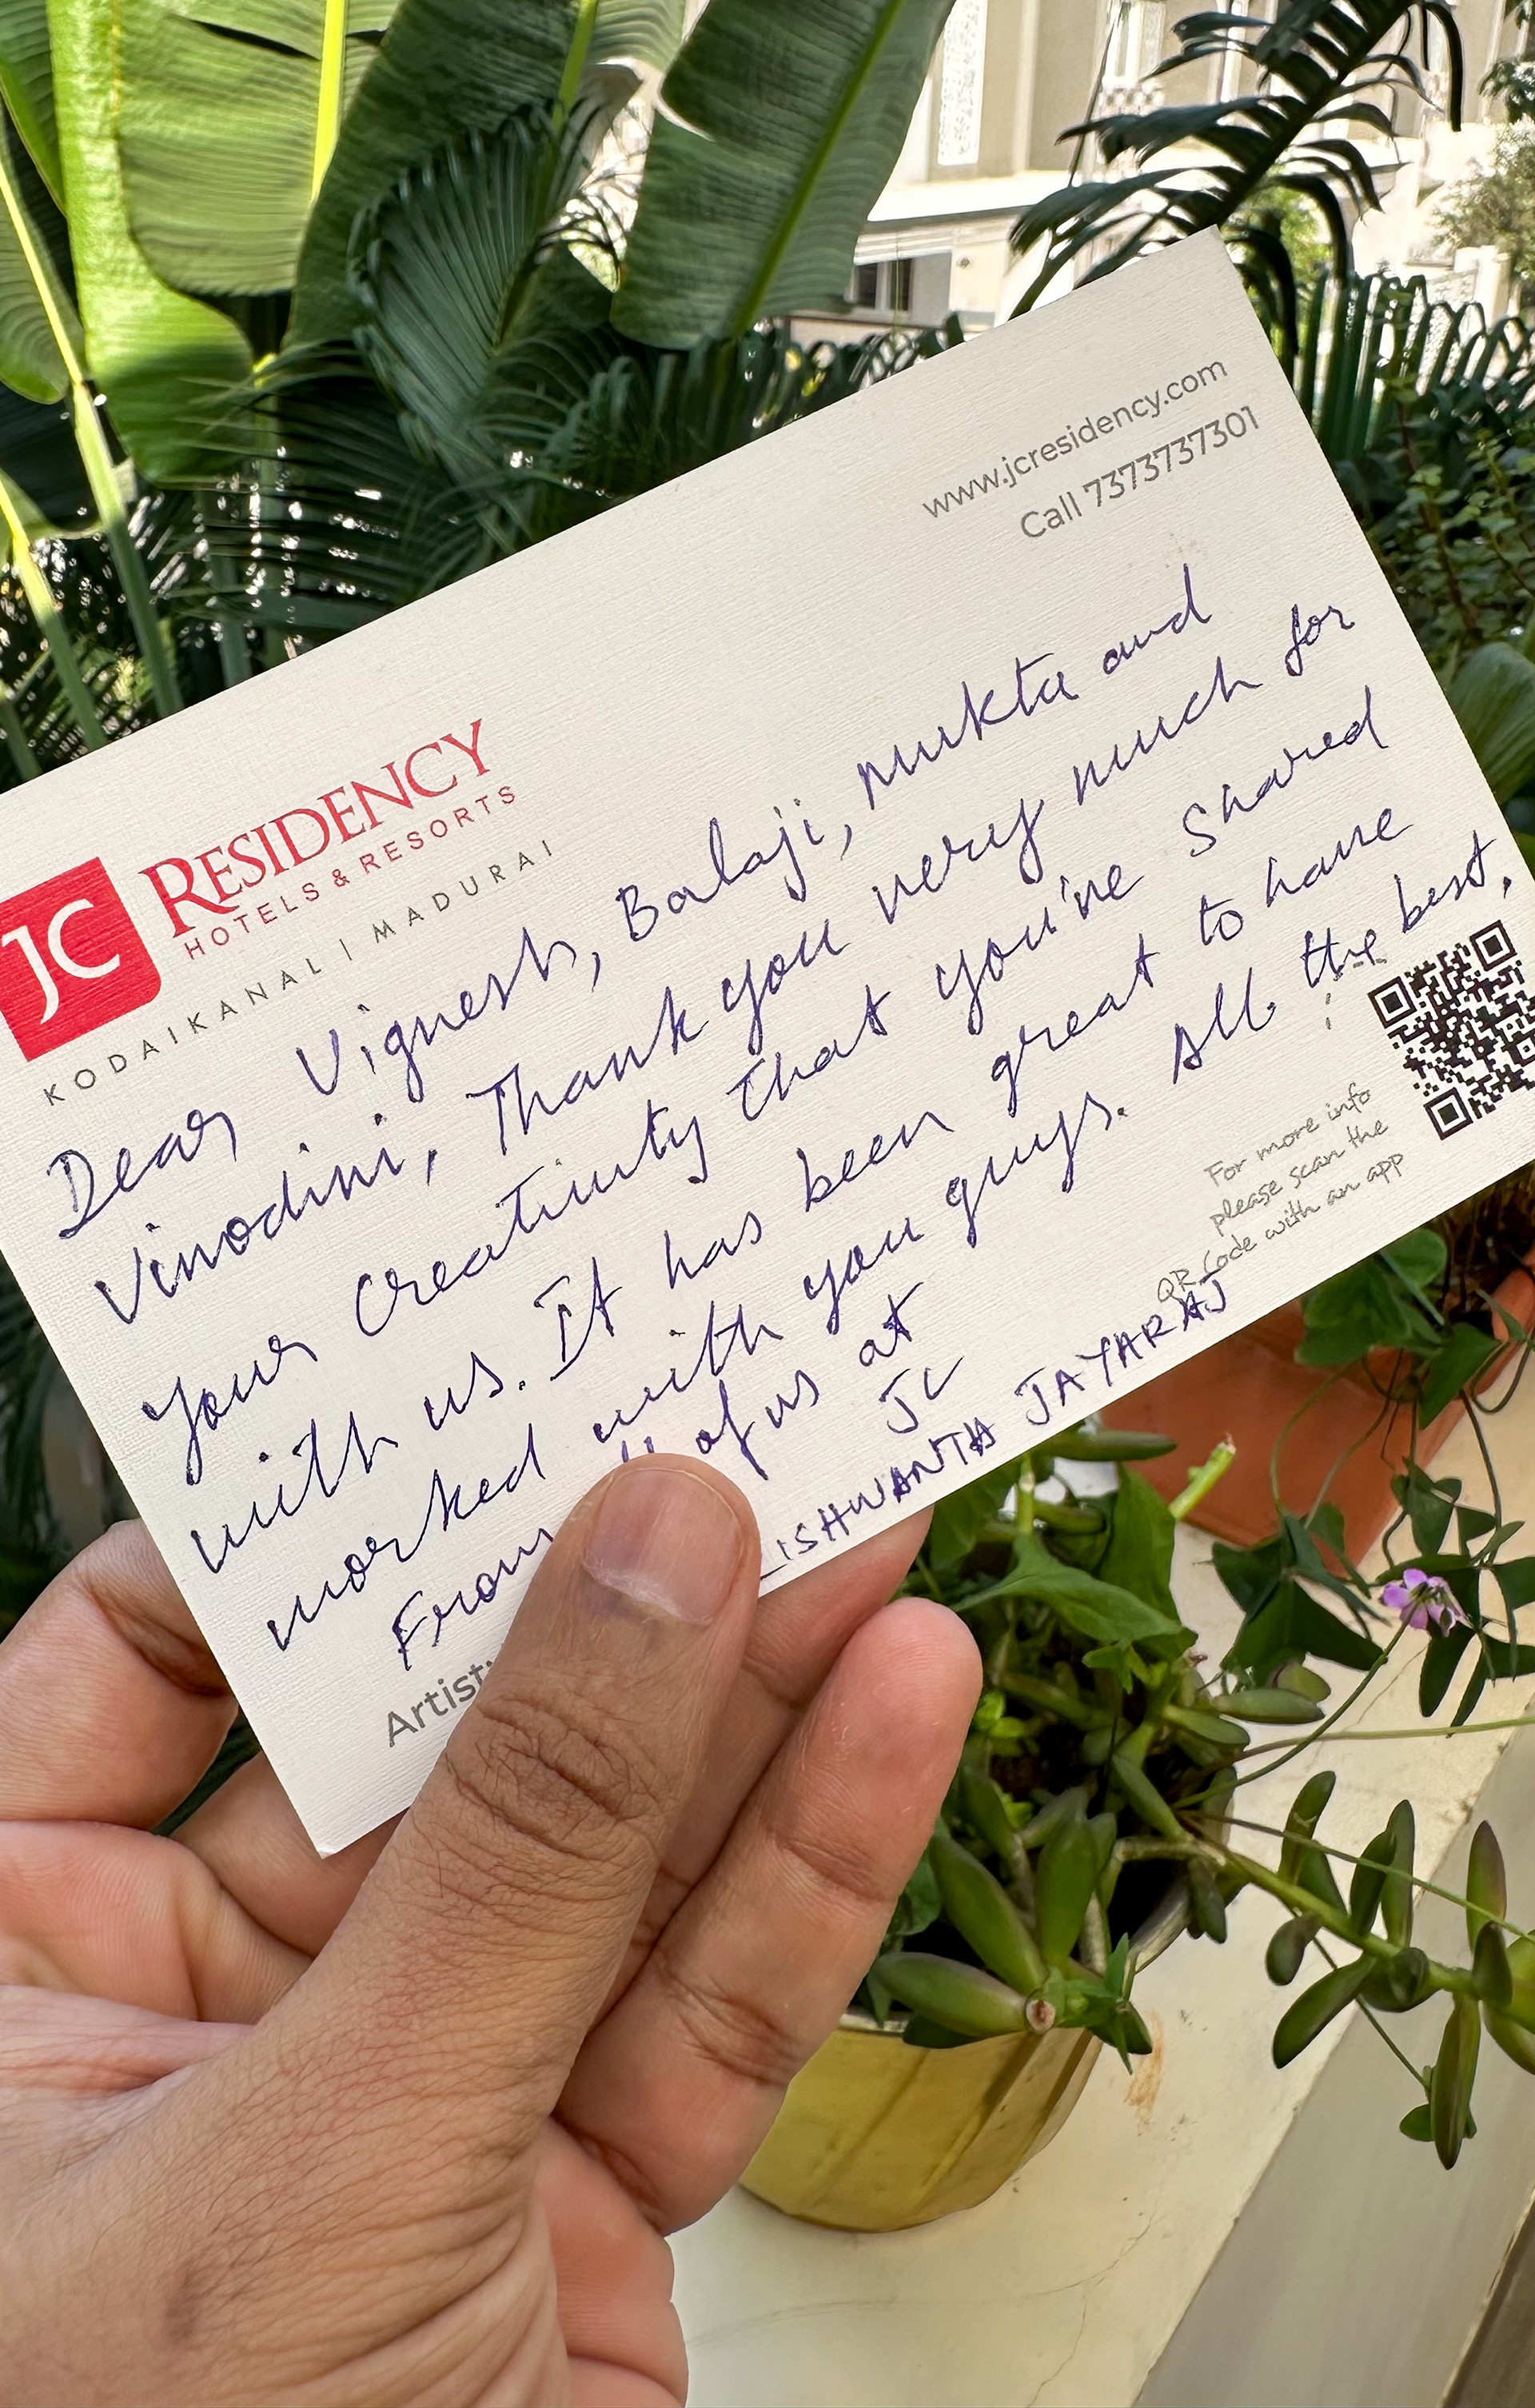 www.jcresidency.com
Call 7373737301
JC RESIDENCY
HOTELS & RESORTS
KODAIKANAL | MADURAI
Dear Vignesh, Balaji, Mukta and
Vinodini, Thank you very much for
your creativity that you've shared
with us. It has been great to have
worked with you guys. All the best,
From of us at
JC
JAYARAJ
For more info
please scan the
QR Code with an app